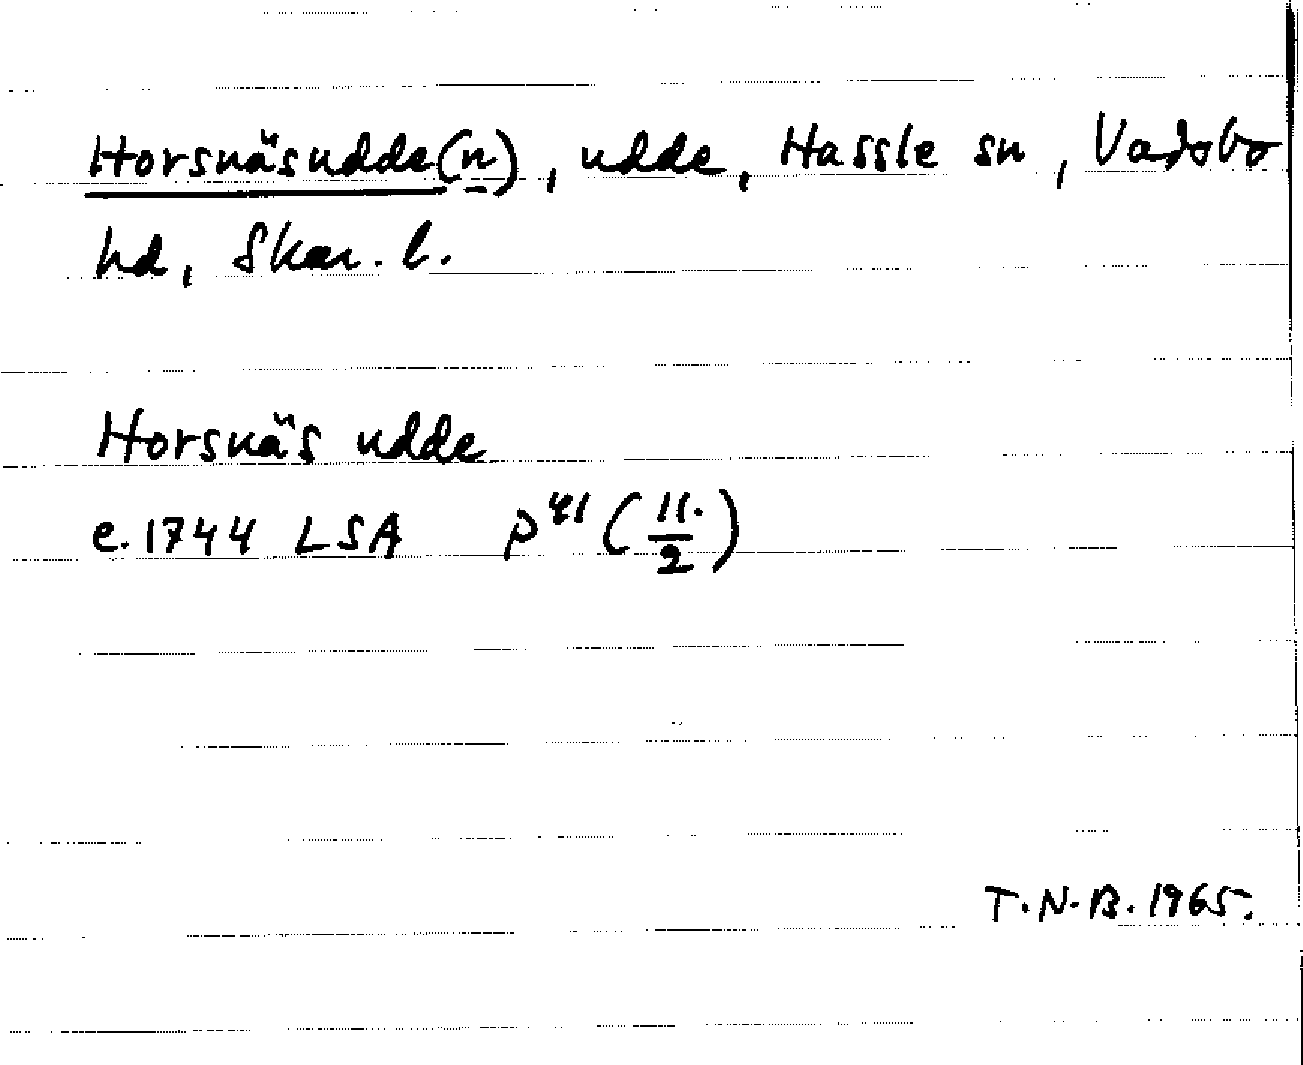 Horsnäsudde(n), udde, Hassle sn, Vadsbo
hd, Skar. l.
Horsnäs udde
e. 1744 LSA P41 (11./2)
T.N.B. 1965.